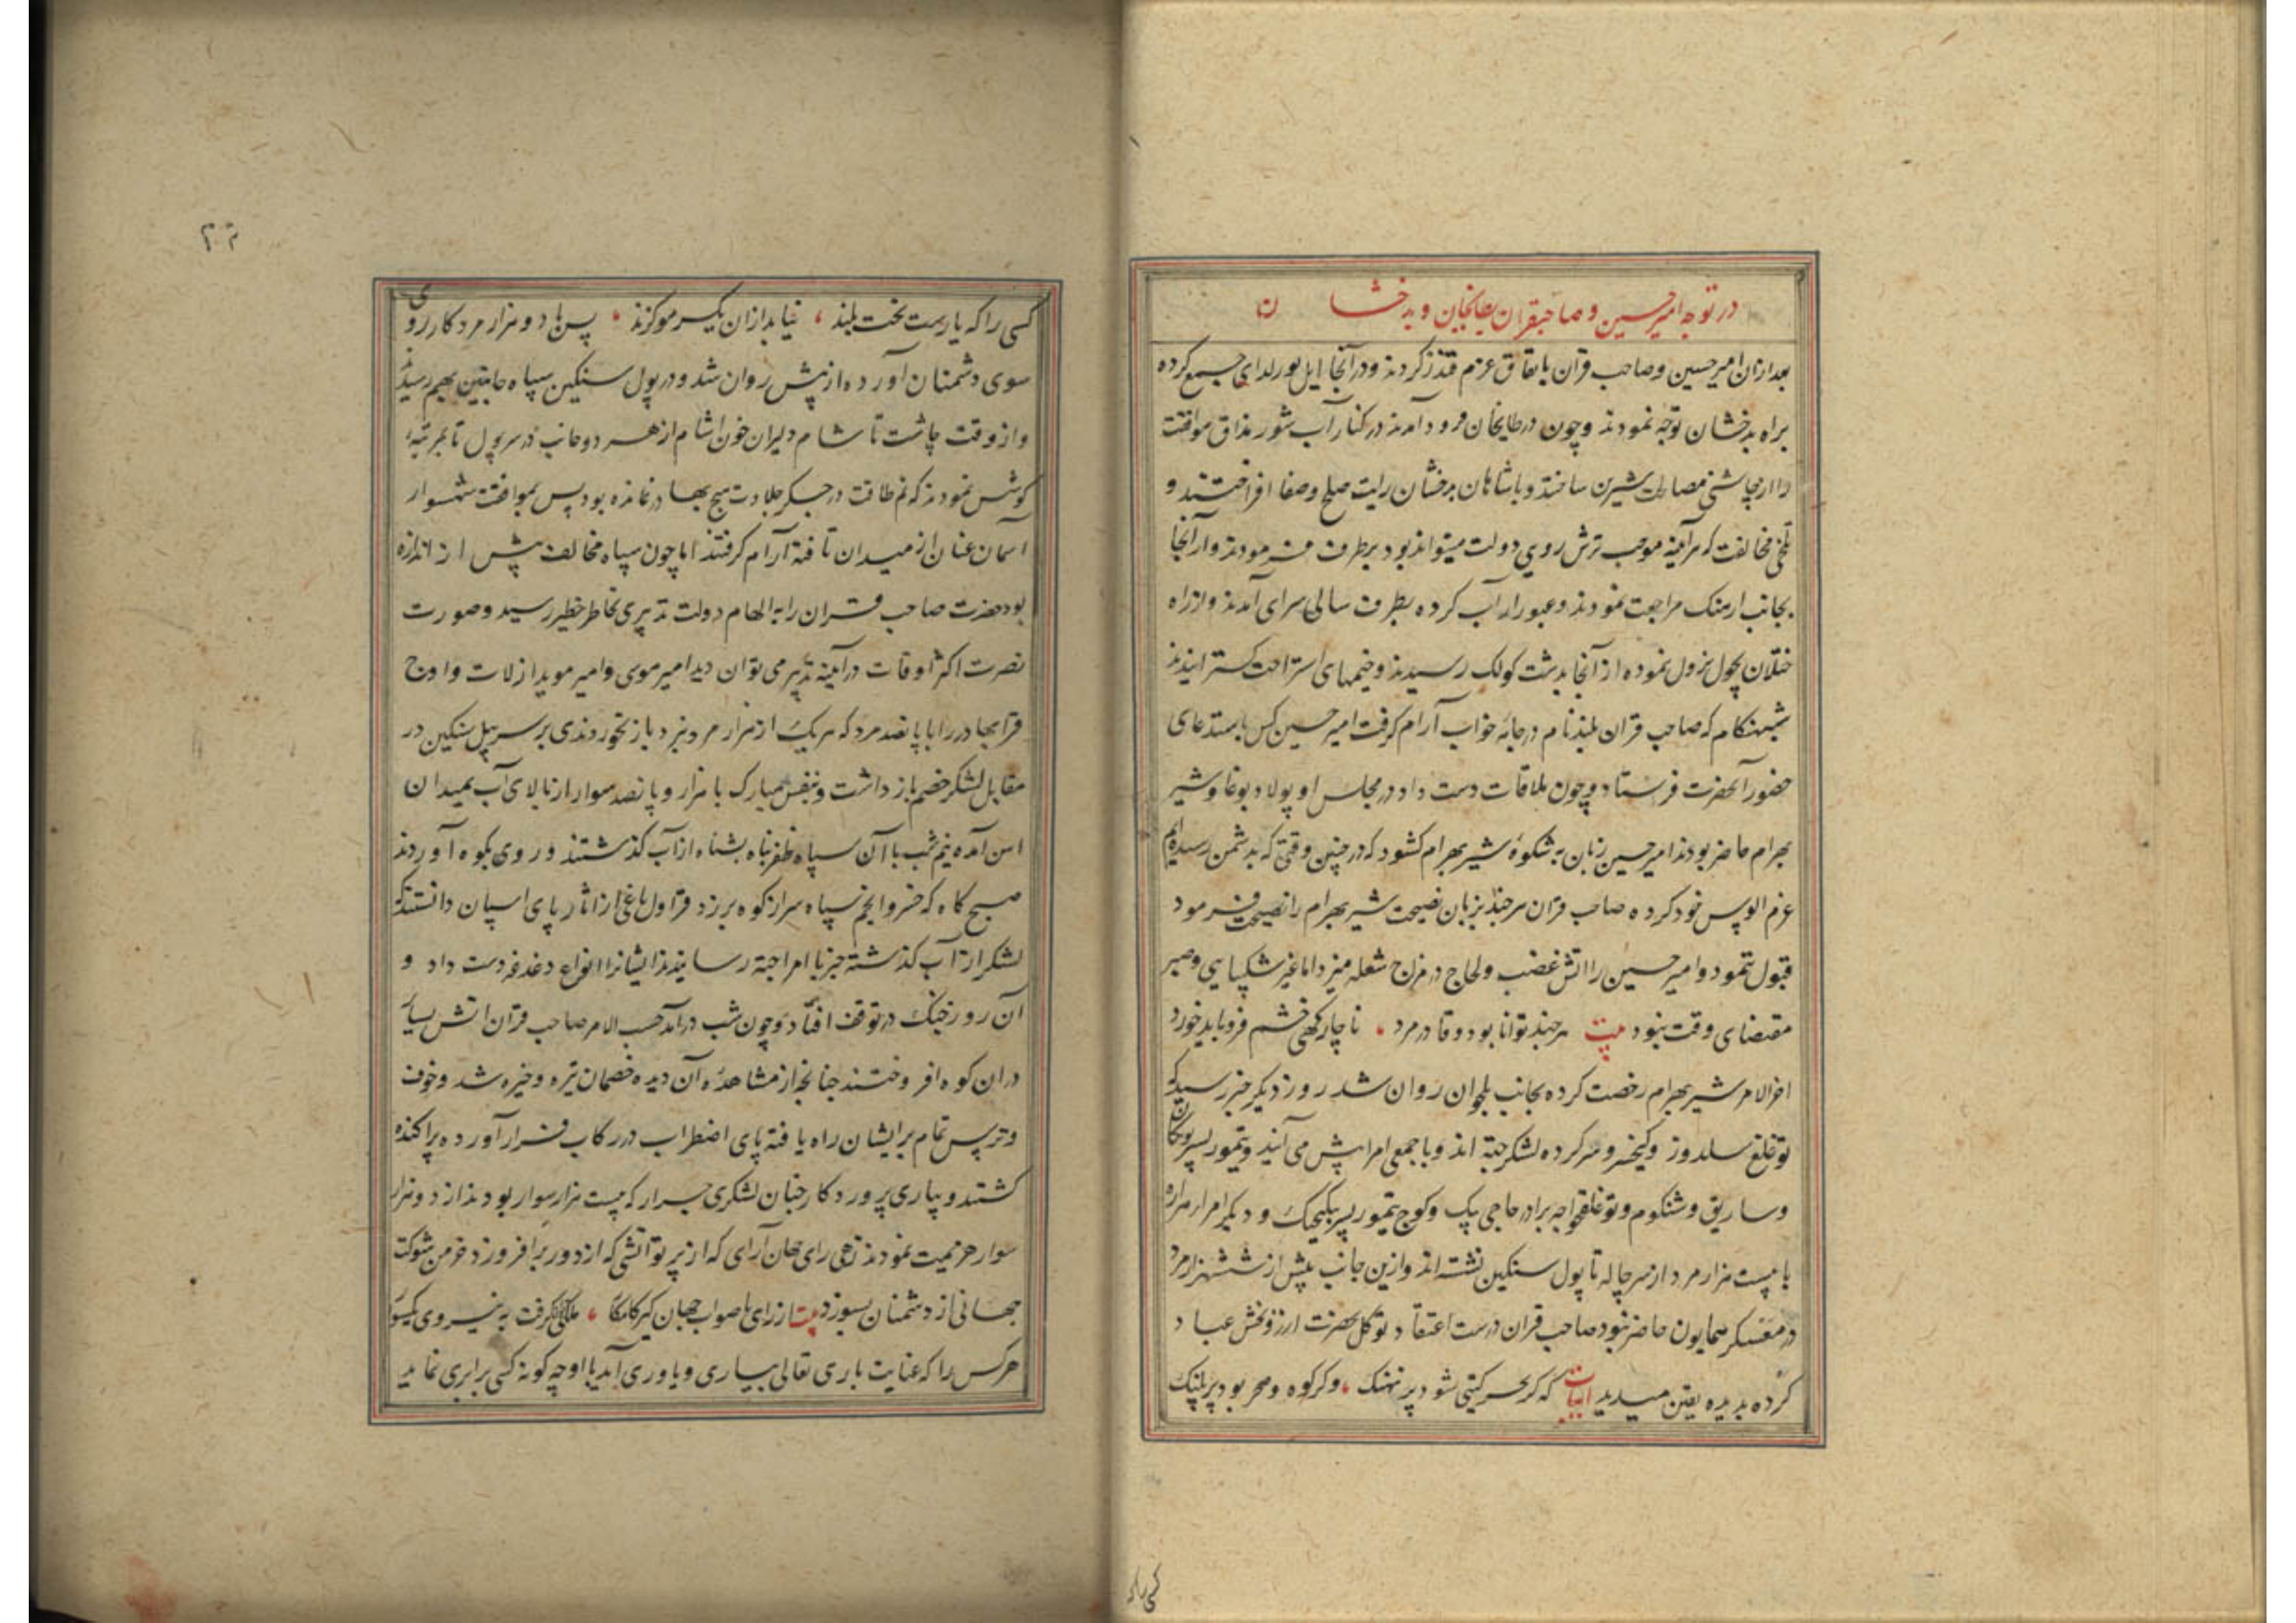 در توجه امیرحسین و صاحبقران بطایخان و بدخشان
بعد ازان امیرحسین و صاحب قران باتفاق عزم قندز کردند و در آنجا ایل بورلدای جمع کرده
براه بدخشان توجه نمودند و چون در طایخان فرود آمدند در کنار آب شور مذاق موافقت
را از چاشنی مصالحت شیرین ساختند و باشاهان بدخشان رایت صلح و صفا افراختند و
تلخی مخالفت که هرآینه موجب ترش رویی دولت میتواند بود برطرف فرمودند و از آنجا
بجانب ارهنک مراجعت نمودند و عبور از آب کرده بطرف سالی سرای آمدند و از راه
ختلان بچول نزول نموده از آنجا بدشت کولک رسیدند و خیمهای استراحت کسترانیدند
شبهنکام که صاحب قران بلند نام در جامه خواب آرام کرفت امیرحسین کس باستدعای
حضور آنحضرت فرستاد و چون ملاقات دست داد در مجلس او پولاد بوغا و شیر
بهرام حاضر بودند امیرحسین زبان به شکوه شیر بهرام کشود که در چنین وقتی که بدشمن رسیده‌ایم
عزم الوس خود کرده صاحب قران هرچند بزبان نصیحت شیر بهرام را نصیحت فرمود
قبول ننمود و امیرحسین را اتش غضب و لجاج در مزاج شعله میزد اما غیر شکیبایی و صبر
مقتضای وقت نبود بیت هرچند توانا بود و قادر مرد ، ناچار کهی خشم فرو باید خورد
اخر الامر شیر بهرام رخصت کرده بجانب بلجوان روان شد روز دیکر خبر رسید که
توغلغ سلدوز و کیخسرو سر کرده لشکر جته اند و با جمعی امرا پیش می آیند و تیمور پسر بوبکان
و ساریق و شنکوم و توغلغ خواجه برادر حاجی بیک و کوج تیمور پسر بیکیجک و دیکر امرا هزاره
با بیست هزار مرد از سر جاله تا پول سنکین نشسته اند و ازین جانب بیش از ششهزار مرد
در معسکر همایون حاضر نبود صاحب قران درست اعتقاد توکل بحضرت ارزو بخش عباد
کرده بدیده یقین میدید ابیات که کر بحر کیتی شود پر نهنک ، وکر کوه و صحر بود پر پلنک
کسی را که
۲۲
کسی را که یارست بخت بلند ، نیابد ازان یکسر مو کزند ، پس با دو هزار مرد کار روی
سوی دشمنان آورده از پیش روان شد و در پول سنکین سپاه جانبین بهم رسید
و از وقت چاشت تا شام دلیران خون اشام از هر دو جانب در سر پول تا بمرتبه
کوشش نمودند که نم طاقت در جکر جلادت هیچ بها درنمانده بود پس بموافقت شهسوار
آسمان عنان از میدان تافته آرام کرفتند اما چون سپاه مخالف بیش از اندازه
بود حضرت صاحب قران را به الهام دولت تدبیری بخاطر خطیر رسید و صورت
نصرت اکثر اوقات در آینه تدبیر می توان دید امیر موسی و امیر موید ارلات و اوج
قرا بهادر را با پانصد مرد که هریک از هزار مرد نبرد باز نخوردندی بر سر پل سنکین در
مقابل لشکر خصم بازداشت و بنفس مبارک با هزار و پانصد سوار از بالای آب بمیدان
اسن آمده نیم شب با آن سپاه ظفر پناه بشناه از آب کذشتند و روی بکوه آوردند
صبح کاه که خسرو انجم سپاه سر از کوه برزد قراول یاغی از اثار پای اسپان دانستند که
لشکر از آب کذشته خبر با امرا جته رسانیدند ایشانرا انواع دغدغه دست داد و
آن روز جنک در توقف افتاد و چون شب درآمد حسب الامر صاحب قران اتش بسیار
دران کوه افروختند چنانچه از مشاهده آن دیده خصمان تیره و خیره شد و خوف
و ترس تمام بر ایشان راه یافته پای اضطراب در رکاب فرار آورده پراکنده
کشتند و بیاری پروردکار چنان لشکری جرار که بیست هزار سوار بودند از دو هزار
سوار هزیمت نمودند زهی رای جهان آرای که از پرتو آتشی که از دور برافروزد خرمن شوکت
جهانی از دشمنان بسوزد بیت از رای با صواب جهان کیر کامکار ، ملکی کرفت به نیروی یکسوار
هر کس را که عنایت باری تعالی بیاری و یاوری آید با او چه کونه کسی برابری نماید